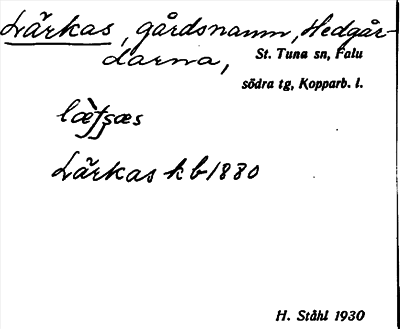 Lärkas, gårdsnamn, Hedgår-
darna, St. Tuna sn, Falu
södra tg, Kopparb. l.
Lärkas kb 1880
H. Ståhl 1930